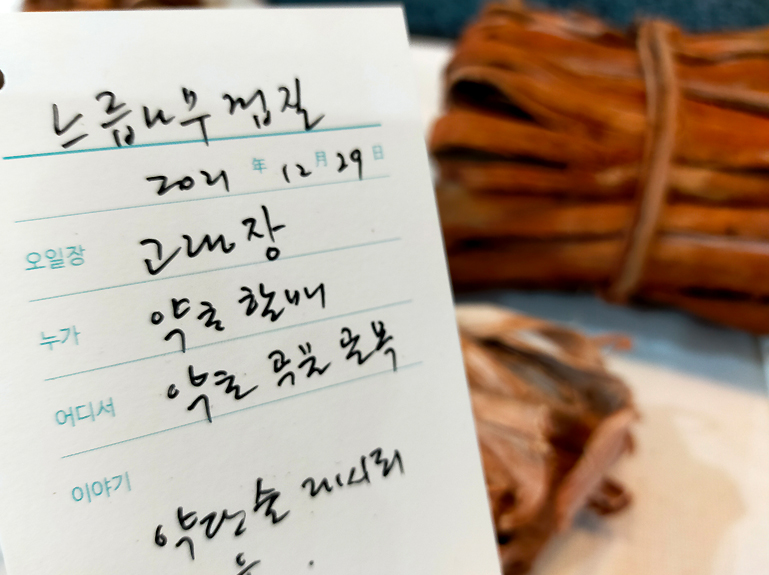 느릅나무 껍질
2021 年 12 月 29 日
오일장 고래장
누가 약초 할배
어디서 약초 곡물 골목
이야기
약단술 레시피